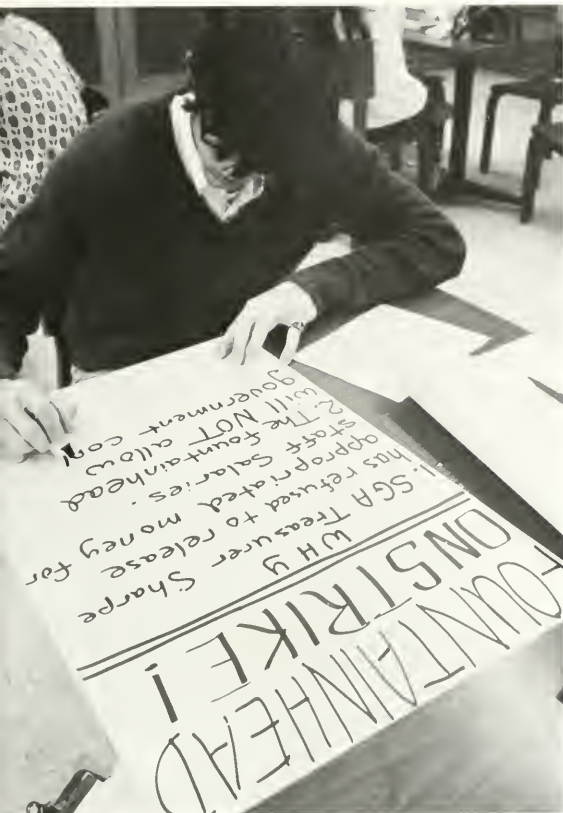 FOUNTAINHEAD
ON STRIKE!
WHY
1. SGA Treasurer Sharpe
has refused to release money for
appropriated
staff salaries.
2. The fountainhead
will NOT allow
government con